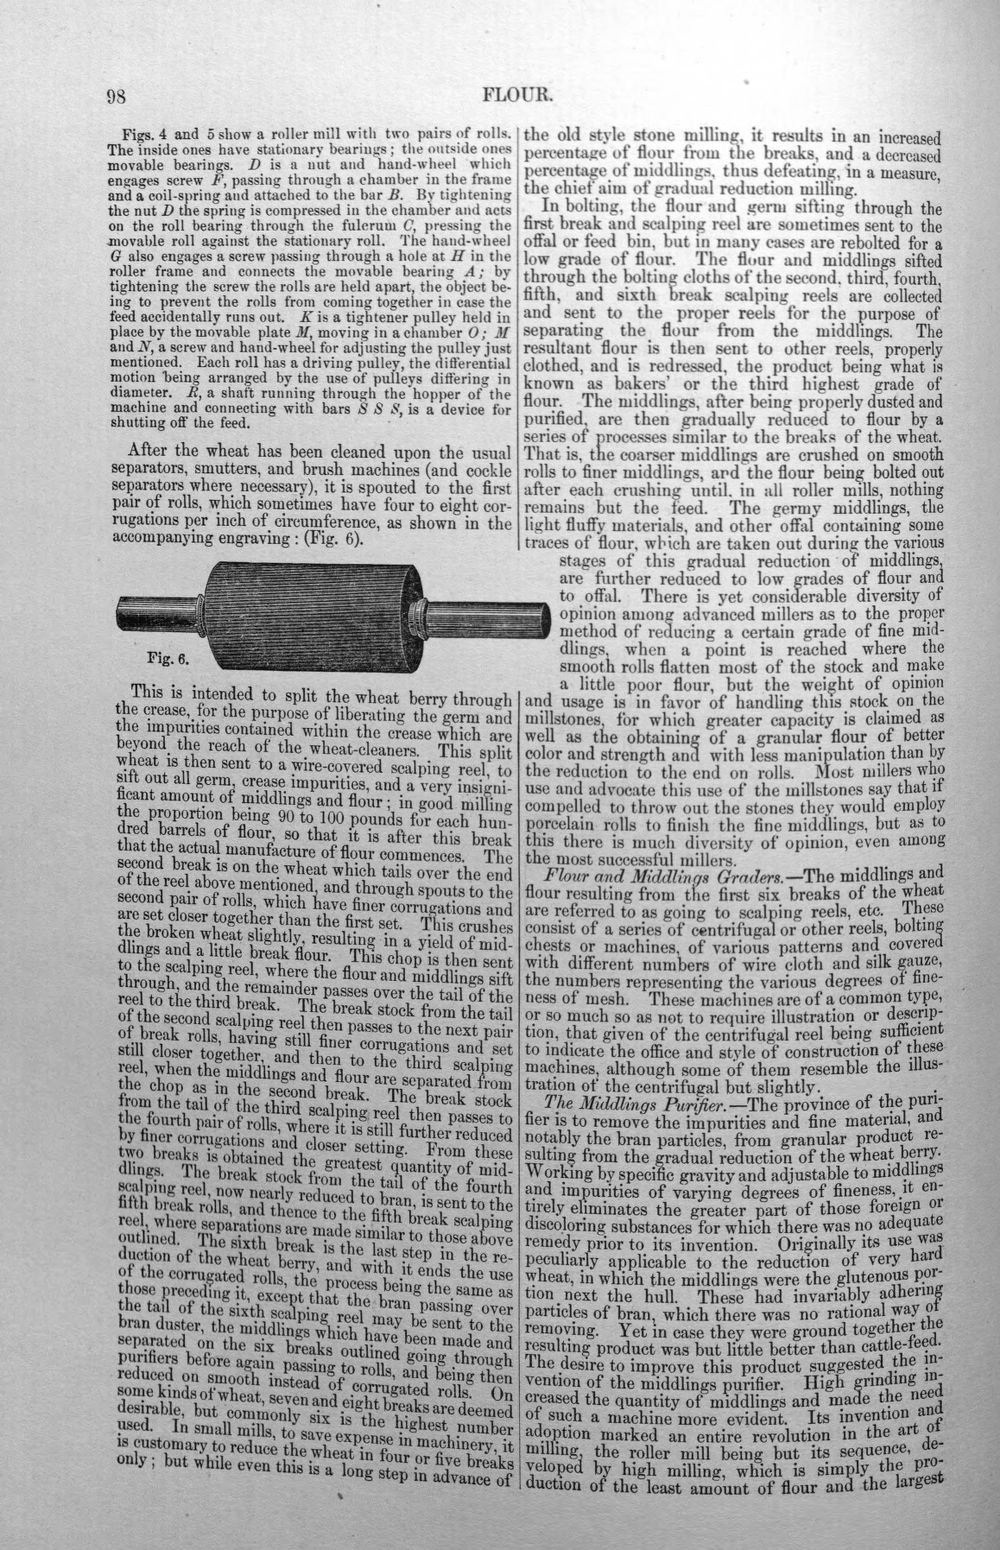 98
FLOUR.
Figs. 4 and 5 show a roller mill with two pairs of rolls.
The inside ones have stationary bearings; the outside ones
movable bearings. D is a nut and hand-wheel which
engages screw F, passing through a chamber in the frame
and a coil-spring and attached to the bar B. By tightening
the nut D the spring is compressed in the chamber and acts
on the roll bearing through the fulcrum C, pressing the
movable roll against the stationary roll. The hand-wheel
G also engages a screw passing through a hole at H in the
roller frame and connects the movable bearing A; by
tightening the screw the rolls are held apart, the object be-
ing to prevent the rolls from coming together in case the
feed accidentally runs out. K is a tightener pulley held in
place by the movable plate M, moving in a chamber O; M
and N, a screw and hand-wheel for adjusting the pulley just
mentioned. Each roll has a driving pulley, the differential
motion being arranged by the use of pulleys differing in
diameter. R, a shaft running through the hopper of the
machine and connecting with bars S S S, is a device for
shutting off the feed.
After the wheat has been cleaned upon the usual
separators, smutters, and brush machines (and cockle
separators where necessary), it is spouted to the first
pair of rolls, which sometimes have four to eight cor-
rugations per inch of circumference, as shown in the
accompanying engraving: (Fig. 6).
Fig. 6.
This is intended to split the wheat berry through
the crease, for the purpose of liberating the germ and
the impurities contained within the crease which are
beyond the reach of the wheat-cleaners. This split
wheat is then sent to a wire-covered scalping reel, to
sift out all germ, crease impurities, and a very insigni-
ficant amount of middlings and flour; in good milling
the proportion being 90 to 100 pounds for each hun-
dred barrels of flour, so that it is after this break
that the actual manufacture of flour commences. The
second break is on the wheat which tails over the end
of the reel above mentioned, and through spouts to the
second pair of rolls, which have finer corrugations and
are set closer together than the first set. This crushes
the broken wheat slightly, resulting in a yield of mid-
dlings and a little break flour. This chop is then sent
to the scalping reel, where the flour and middlings sift
through, and the remainder passes over the tail of the
reel to the third break. The break stock from the tail
of the second scalping reel then passes to the next pair
of break rolls, having still finer corrugations and set
still closer together, and then to the third scalping
reel, when the middlings and flour are separated from
the chop as in the second break. The break stock
from the tail of the third scalping reel then passes to
the fourth pair of rolls, where it is still further reduced
by finer corrugations and closer setting. From these
two breaks is obtained the greatest quantity of mid-
dlings. The break stock from the tail of the fourth
scalping reel, now nearly reduced to bran, is sent to the
fifth break rolls, and thence to the fifth break scalping
reel, where separations are made similar to those above
outlined. The sixth break is the last step in the re-
duction of the wheat berry, and with it ends the use
of the corrugated rolls, the process being the same as
those preceding it, except that the bran passing over
the tail of the sixth scalping reel may be sent to the
bran duster, the middlings which have been made and
separated on the six breaks outlined going through
purifiers before again passing to rolls, and being then
reduced on smooth instead of corrugated rolls. On
some kinds of wheat, seven and eight breaks are deemed
desirable, but commonly six is the highest number
used. In small mills, to save expense in machinery, it
is customary to reduce the wheat in four or five breaks
only; but while even this is a long step in advance of
the old style stone milling, it results in an increased
percentage of flour from the breaks, and a decreased
percentage of middlings, thus defeating, in a measure,
the chief aim of gradual reduction milling.
In bolting, the flour and germ sifting through the
first break and scalping reel are sometimes sent to the
offal or feed bin, but in many cases are rebolted for a
low grade of flour. The flour and middlings sifted
through the bolting cloths of the second, third, fourth,
fifth, and sixth break scalping reels are collected
and sent to the proper reels for the purpose of
separating the flour from the middlings. The
resultant flour is then sent to other reels, properly
clothed, and is redressed, the product being what is
known as bakers' or the third highest grade of
flour. The middlings, after being properly dusted and
purified, are then gradually reduced to flour by a
series of processes similar to the breaks of the wheat.
That is, the coarser middlings are crushed on smooth
rolls to finer middlings, and the flour being bolted out
after each crushing until, in all roller mills, nothing
remains but the feed. The germy middlings, the
light fluffy materials, and other offal containing some
traces of flour, which are taken out during the various
stages of this gradual reduction of middlings,
are further reduced to low grades of flour and
to offal. There is yet considerable diversity of
opinion among advanced millers as to the proper
method of reducing a certain grade of fine mid-
dlings, when a point is reached where the
smooth rolls flatten most of the stock and make
a little poor flour, but the weight of opinion
and usage is in favor of handling this stock on the
millstones, for which greater capacity is claimed as
well as the obtaining of a granular flour of better
color and strength and with less manipulation than by
the reduction to the end on rolls. Most millers who
use and advocate this use of the millstones say that if
compelled to throw out the stones they would employ
porcelain rolls to finish the fine middlings, but as to
this there is much diversity of opinion, even among
the most successful millers.
Flour and Middlings Graders.—The middlings and
flour resulting from the first six breaks of the wheat
are referred to as going to scalping reels, etc. These
consist of a series of centrifugal or other reels, bolting
chests or machines, of various patterns and covered
with different numbers of wire cloth and silk gauze,
the numbers representing the various degrees of fine-
ness of mesh. These machines are of a common type,
or so much so as not to require illustration or descrip-
tion, that given of the centrifugal reel being sufficient
to indicate the office and style of construction of these
machines, although some of them resemble the illus-
tration of the centrifugal but slightly.
The Middlings Purifier.—The province of the puri-
fier is to remove the impurities and fine material, and
notably the bran particles, from granular product re-
sulting from the gradual reduction of the wheat berry.
Working by specific gravity and adjustable to middlings
and impurities of varying degrees of fineness, it en-
tirely eliminates the greater part of those foreign or
discoloring substances for which there was no adequate
remedy prior to its invention. Originally its use was
peculiarly applicable to the reduction of very hard
wheat, in which the middlings were the glutenous por-
tion next the hull. These had invariably adhering
particles of bran, which there was no rational way of
removing. Yet in case they were ground together the
resulting product was but little better than cattle-feed.
The desire to improve this product suggested the in-
vention of the middlings purifier. High grinding in-
creased the quantity of middlings and made the need
of such a machine more evident. Its invention and
adoption marked an entire revolution in the art of
milling, the roller mill being but its sequence, de-
veloped by high milling, which is simply the pro-
duction of the least amount of flour and the largest